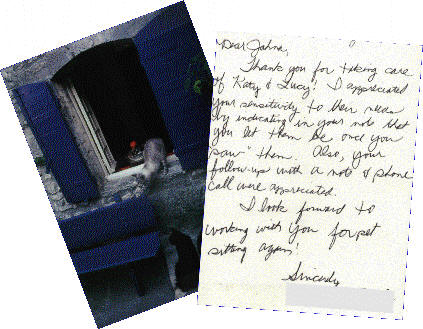 Dear Jahna,
Thank you for taking care
of Katy & Lucy! I appreciated
your sensitivity to their needs
by indicating in your note that
you let them be once you
"saw" them. Also, your
follow-up with a note & phone
call were appreciated.
I look forward to
working with you for pet
sitting again!
Sincerely,